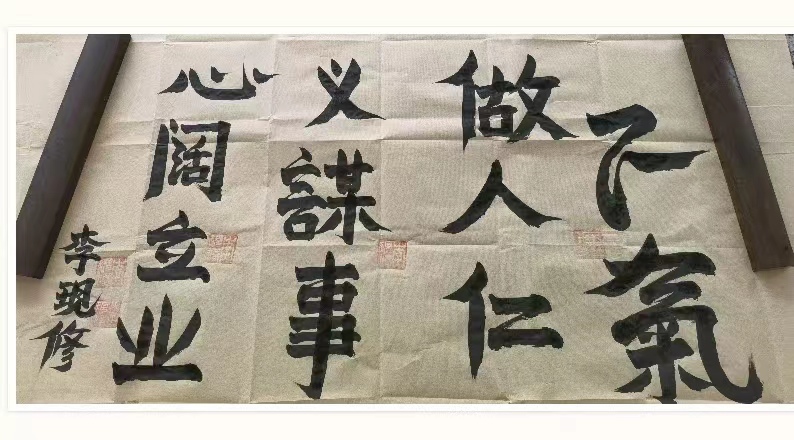 氣
做人仁
义謀事
心阔立业
李現修